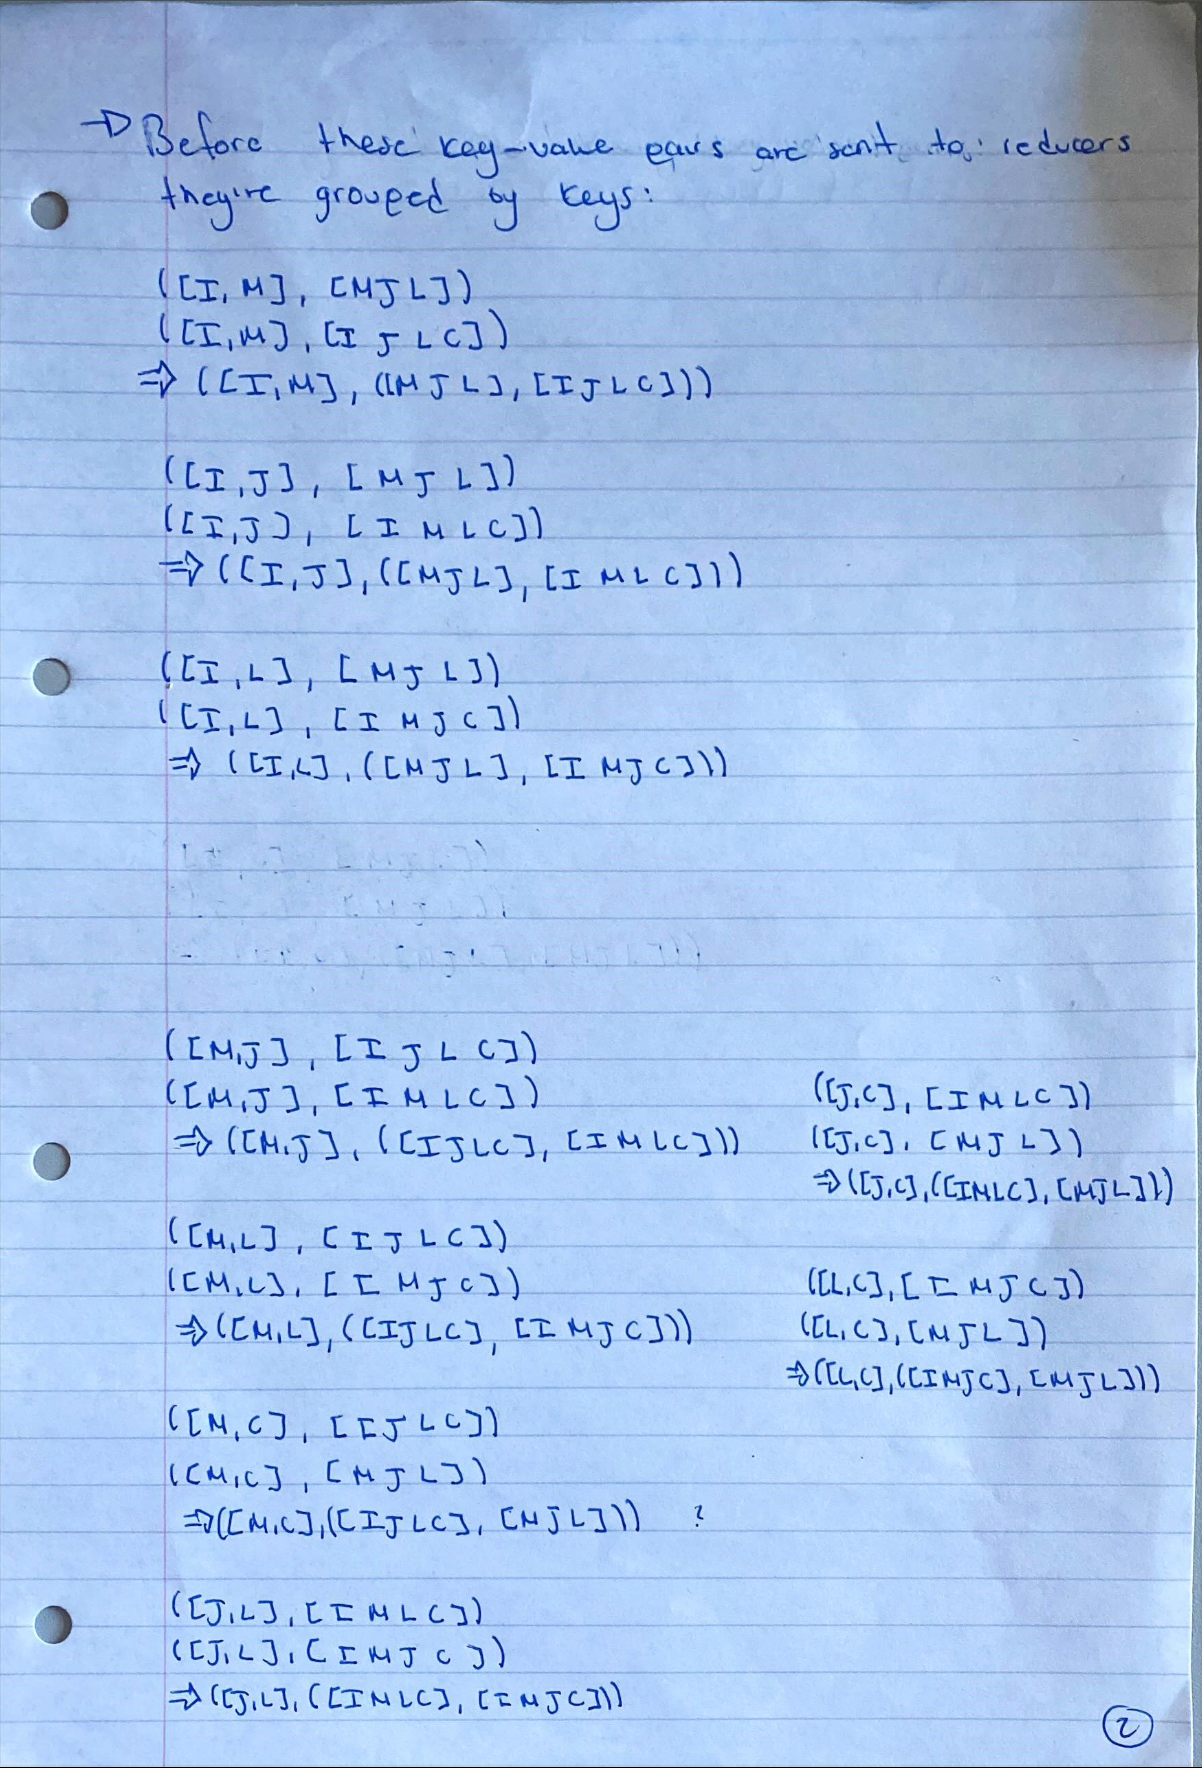 → Before these key-value pairs are sent to reducers
they're grouped by keys:
([I, M], [M J L])
([I, M], [I J L C])
⇒ ([I, M], ([M J L], [I J L C]))
([I, J], [M J L])
([I, J], [I M L C])
⇒ ([I, J], ([M J L], [I M L C]))
([I, L], [M J L])
([I, L], [I M J C])
⇒ ([I, L], ([M J L], [I M J C]))
([M, J], [I J L C])
([M, J], [I M L C])
⇒ ([M, J], ([I J L C], [I M L C]))
([M, L], [I J L C])
([M, L], [I M J C])
⇒ ([M, L], ([I J L C], [I M J C]))
([M, C], [I J L C])
([M, C], [M J L])
⇒ ([M, C], ([I J L C], [M J L])) ?
([J, L], [I M L C])
([J, L], [I M J C])
⇒ ([J, L], ([I M L C], [I M J C]))
([J, C], [I M L C])
([J, C], [M J L])
⇒ ([J, C], ([I M L C], [M J L]))
([L, C], [I M J C])
([L, C], [M J L])
⇒ ([L, C], ([I M J C], [M J L]))
2